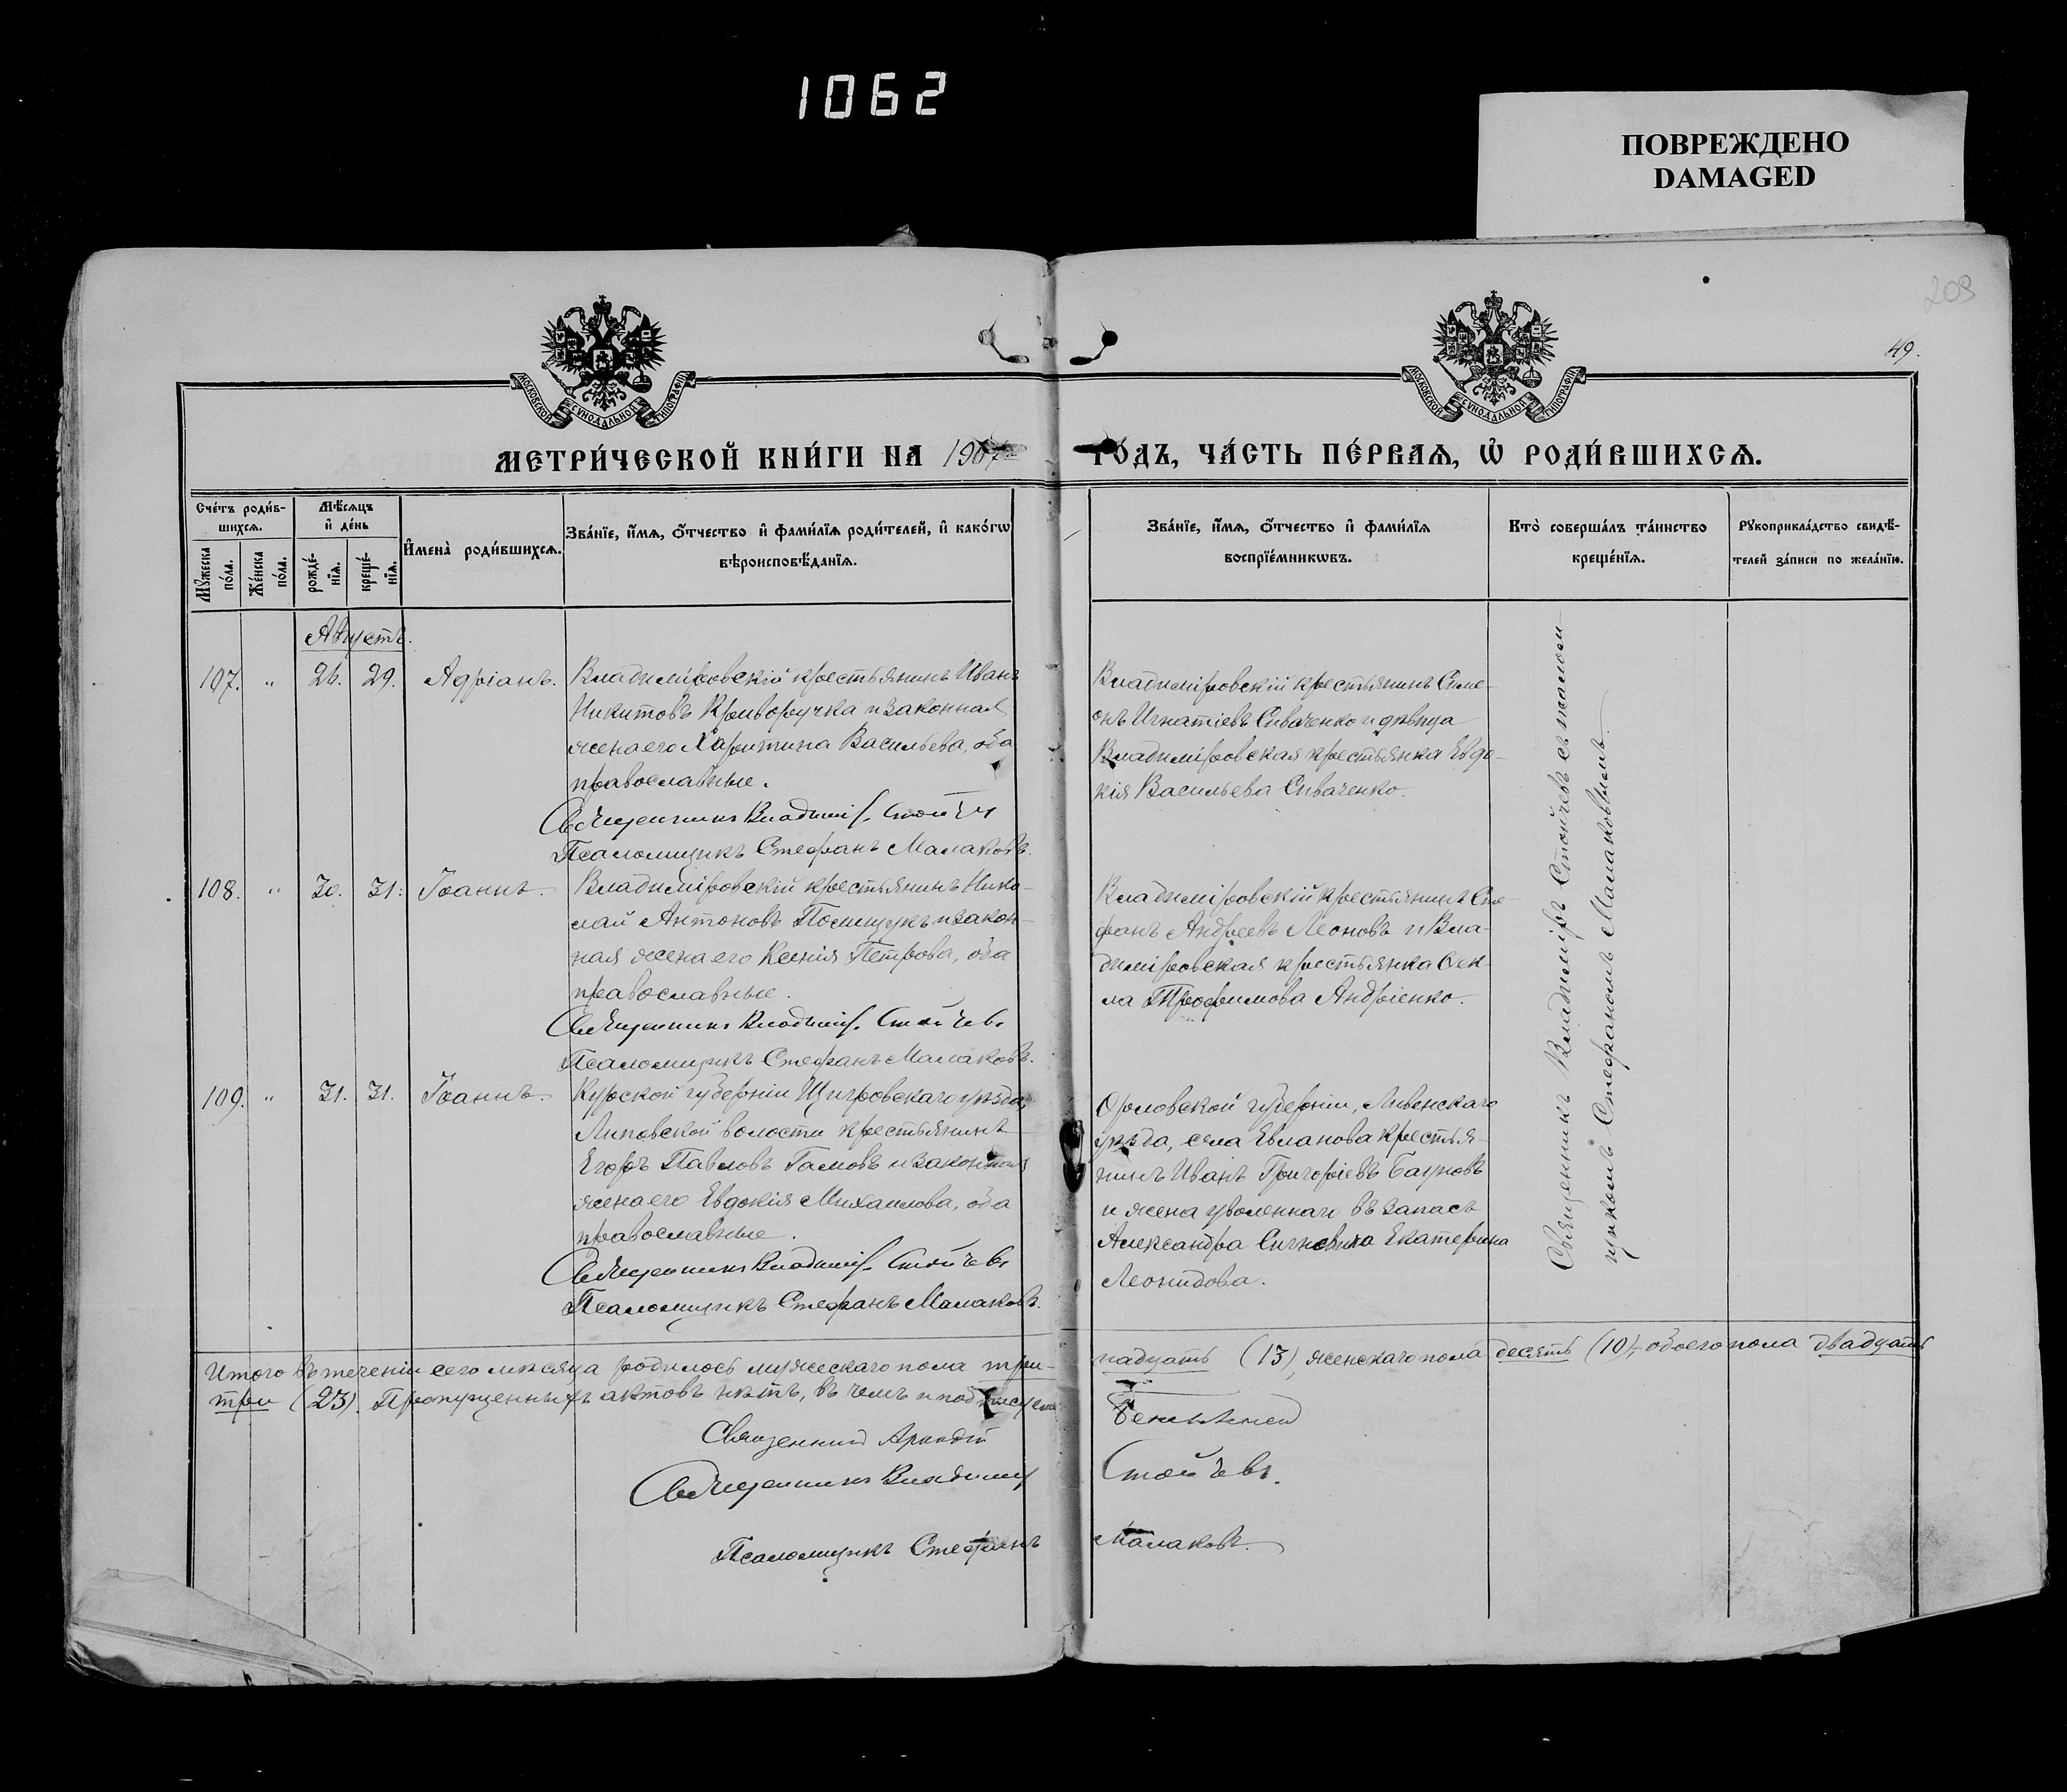 1062
ПОВРЕЖДЕНО
DAMAGED
209
49.
МОСКОВСКОЙ СѴНОДАЛЬНОЙ ТИПОГРАФІИ
МОСКОВСКОЙ СѴНОДАЛЬНОЙ ТИПОГРАФІИ
МЕТРИ́ЧЕСКОЙ КНИ́ГИ НА 1907
ГО́ДЪ, ЧА́СТЬ ПЕ́РВАѦ, Ѡ҆ РОДИ́ВШИХСѦ.
Сче́тъ роди́в-
шихсѧ.
Мꙋ́жеска по́ла.
Же́нска по́ла.
Мѣ́сѧцъ
и҆ де́нь
рожде́-
нїѧ.
креще́-
нїѧ.
И҆мена̀ роди́вшихсѧ.
Зва́нїе, и҆́мѧ, ѻ҆́тчество и҆ фами́лїѧ роди́телей, и҆ како́гѡ
вѣроисповѣ́данїѧ.
Зва́нїе, и҆́мѧ, ѻ҆́тчество и҆ фами́лїѧ
воспрїе́мникѡвъ.
Кто̀ соверша́лъ та́инство
креще́нїѧ.
Рꙋкоприкла́дство свидѣ́-
телей за́писи по жела́нїю.
Августъ.
107. " 26. 29. Адріанъ.
Владиміровскій крестьянинъ Иванъ
Никитовъ Криворучка и законная
жена его Харитина Васильева, оба
православные.
Священникъ Владимір. Стойчев
Псаломщикъ Стефанъ Малаковъ.
Владиміровскій крестьянинъ Симе-
онъ Игнатіевъ Сиваченко и дѣвица
Владиміровская крестьянка Евдо-
кія Васильева Сиваченко.
108. " 30. 31. Іоаннъ.
Владиміровскій крестьянинъ Нико-
лай Антоновъ Полищукъ и закон-
ная жена его Ксенія Петрова, оба
православные.
Священникъ Владимір. Стойчевъ
Псаломщикъ Стефанъ Малаковъ.
Владиміровскій крестьянинъ Сте-
фанъ Андреевъ Леоновъ и Вла-
диміровская крестьянка Фек-
ла Трофимова Андріенко.
109. " 31. 31. Іоаннъ.
Курской губерніи Щигровскаго уѣзда,
Липовской волости крестьянинъ
Егоръ Павловъ Гамовъ и законная
жена его Евдокія Михаилова, оба
православные.
Священникъ Владимір. Стойчевъ
Псаломщикъ Стефанъ Малаковъ.
Орловской губерніи, Ливенскаго
уѣзда, села Евланова крестья-
нинъ Иванъ Григоріевъ
и жена уволеннаго въ запасъ
Александра Екатерина
Леонидова.
Священникъ Владиміръ Стойчевъ съ псалом-
щикомъ Стефаномъ Малаковымъ.
Итого въ теченіи сего мѣсяца родилось мужескаго пола три-
надцать (13), женскаго пола десять (10), обоего пола двадцать
три (23). Пропущенныхъ актовъ нѣтъ, въ чемъ и подписуемся
Священник Аркадій
Священникъ Владимир
Стойчевъ.
Псаломщикъ Стефанъ
Малаковъ.